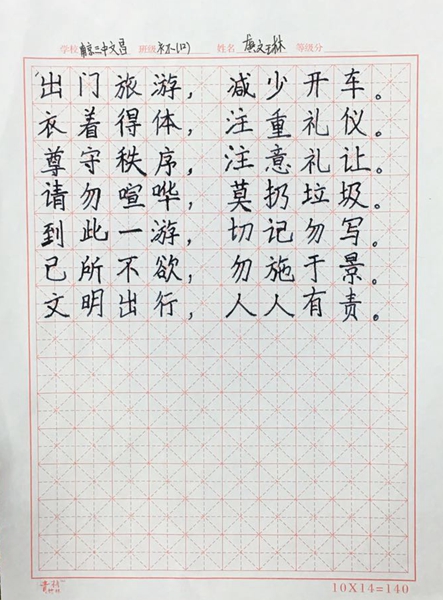 学校 南京三中文昌 班级 初一(12) 姓名 唐文王林 等级分
出门旅游，减少开车。
衣着得体，注重礼仪。
尊守秩序，注意礼让。
请勿喧哗，莫扔垃圾。
到此一游，切记勿写。
己所不欲，勿施于景。
文明出行，人人有责。
10X14=140